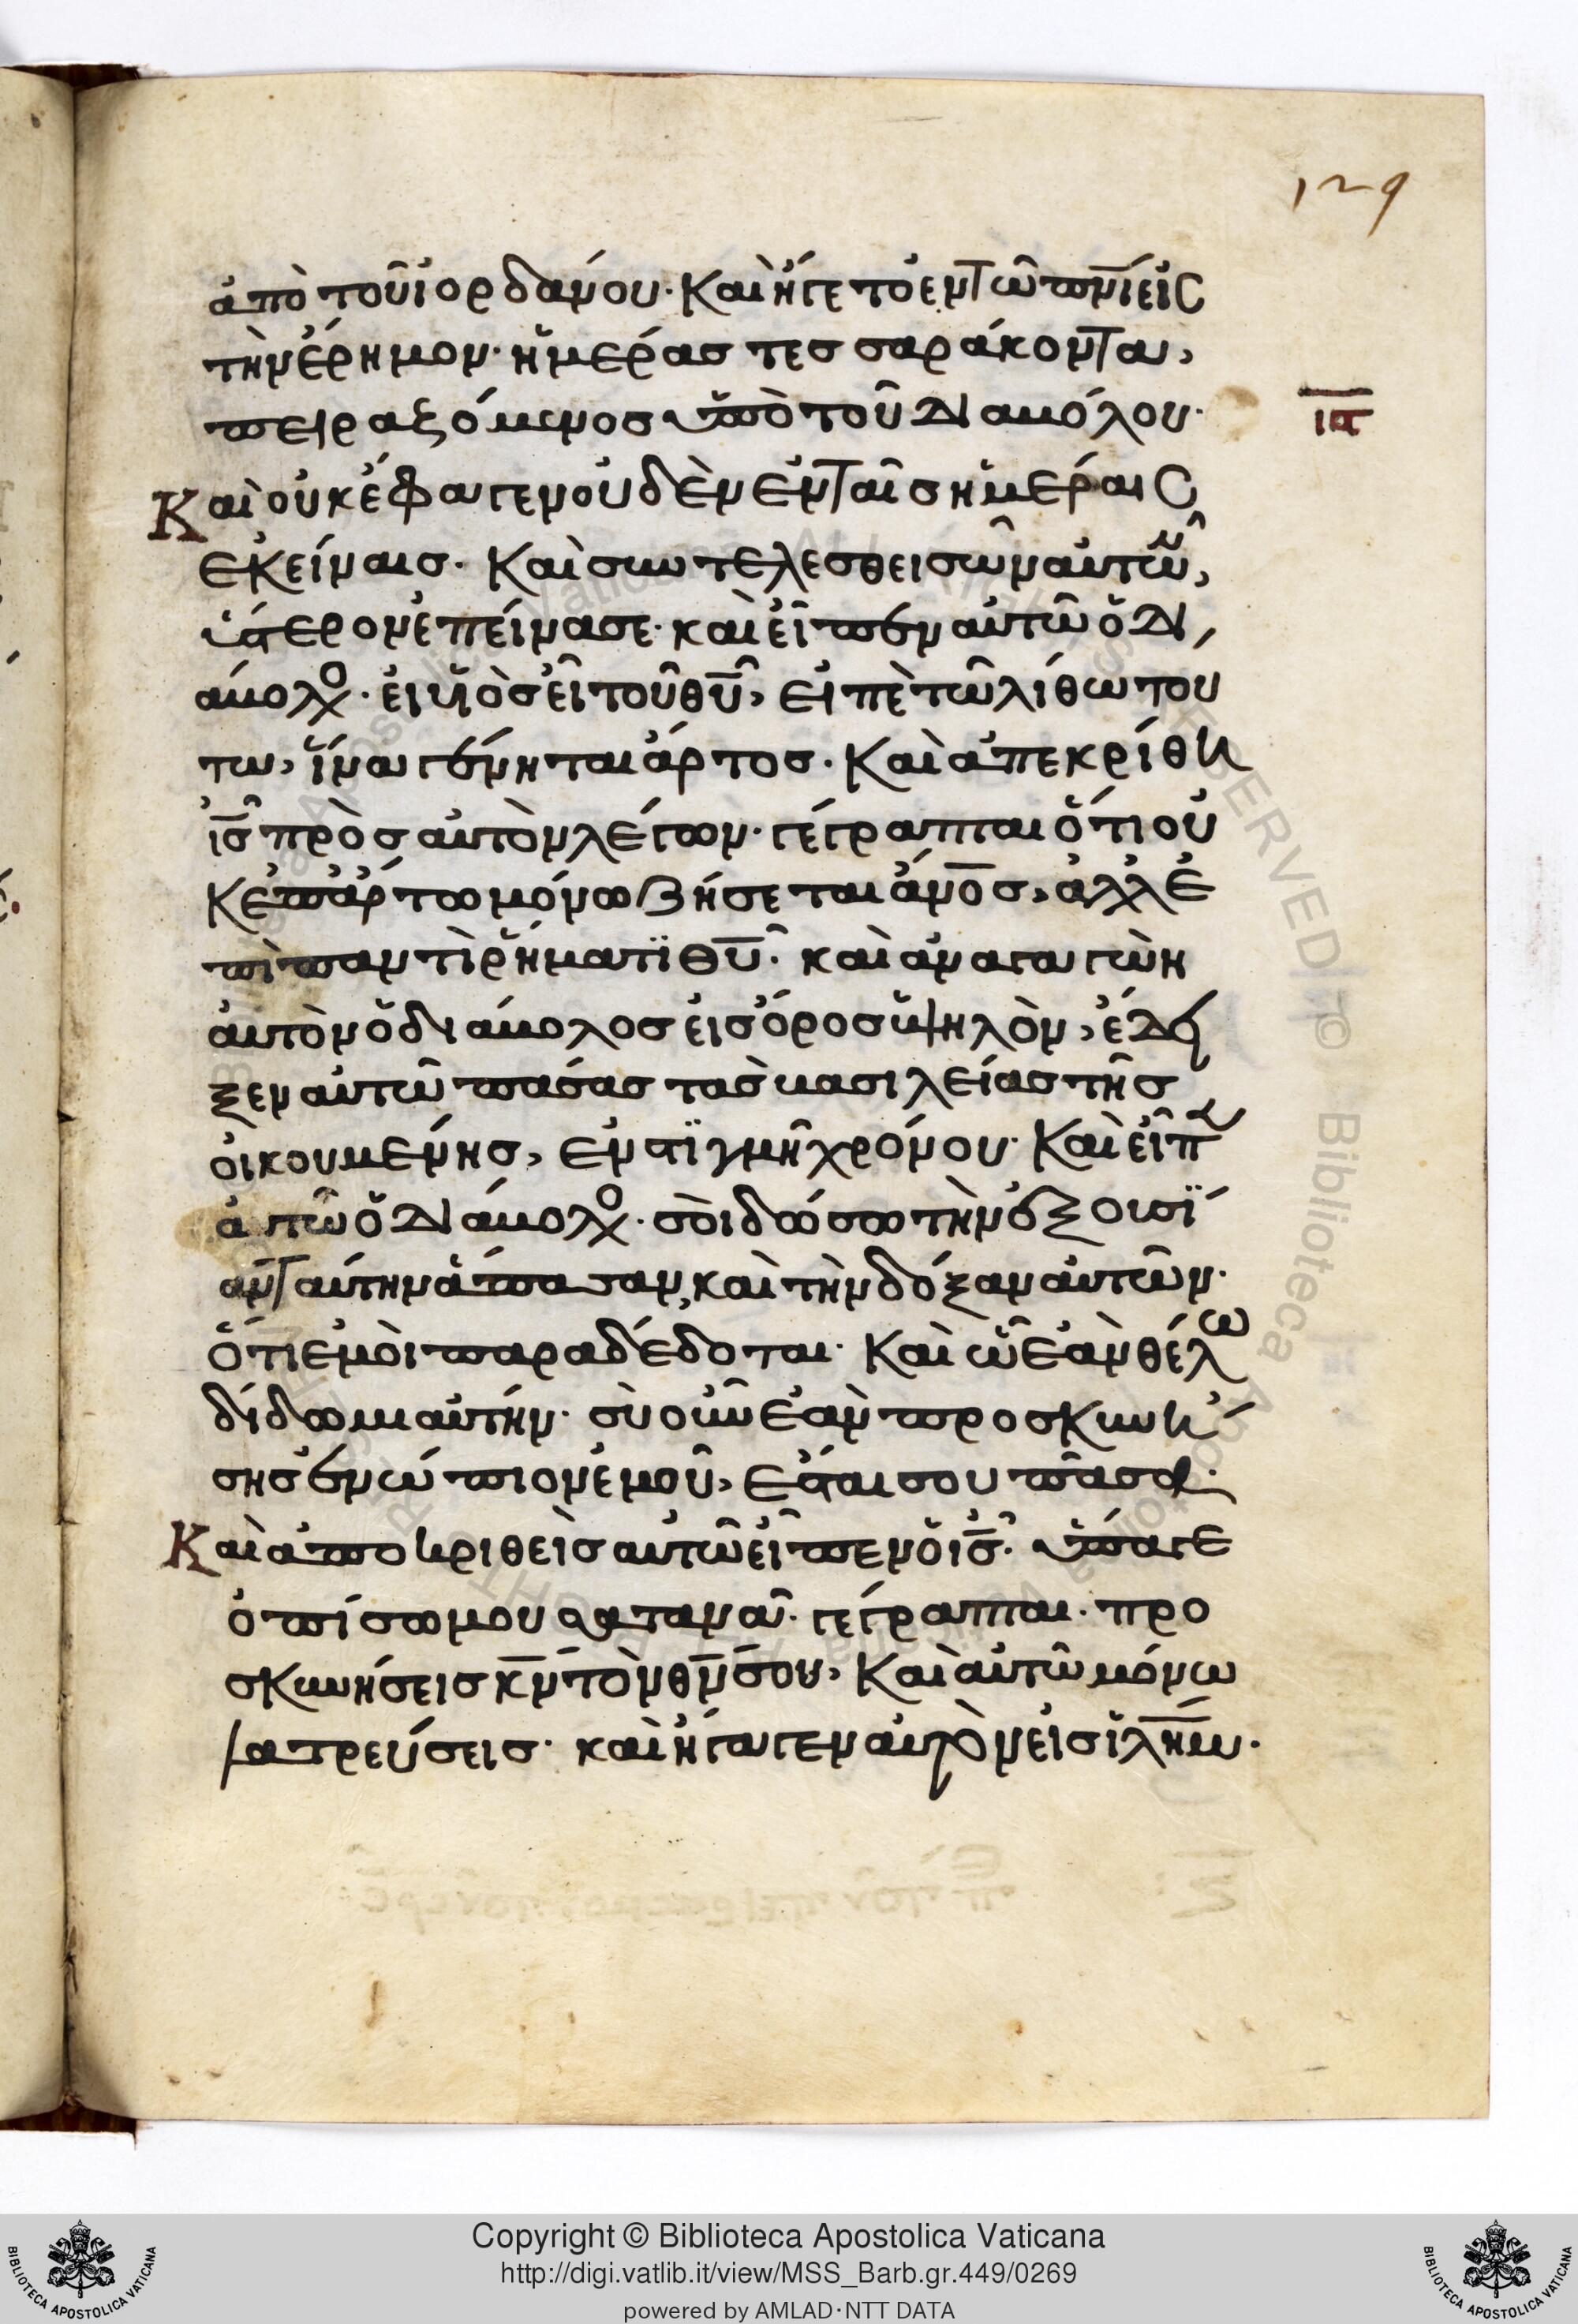 129
ἀπὸ τοῦ ἰορδάνου· Καὶ ἤγετο ἐν τῶ πνι εἰς
τὴν ἔρημον· ἡμέρας τεσσαράκοντα,
πειραζόμενος ὑπὸ τοῦ διαβόλου·
ιϛ
Καὶ οὐκ ἔφαγεν οὐδὲν ἐν ταῖς ἡμέραις
ἐκείναις. Καὶ συντελεσθεισῶν αὐτῶν,
ὕστερον ἐπείνασε· καὶ εἶπεν αὐτῶ ὁ δι
άβολος. εἰ υἱὸς εἶ τοῦ θυ, εἰπὲ τῶ λίθω του
τω, ἵνα γένηται ἄρτος. Καὶ ἀπεκρίθη
ις πρὸς αὐτὸν λέγων· γέγραπται ὅτι οὐ
κ ἐπ ἄρτω μόνω ζήσεται ἄνος, ἀλλ ἐ
πὶ παντὶ ῥήματϊ θυ. καὶ ἀναγαγὼν
αὐτὸν ὁ διάβολος εἰς ὄρος ὑψηλὸν, ἔδει
ξεν αὐτῶ πάσας τὰς βασιλείας τῆς
οἰκουμένης, ἐν στϊγμῆ χρόνου· Καὶ εἶπεν
αὐτῶ ὁ διάβολος. σοὶ δώσω τὴν ἐξουσί
αν ταύτην ἅπασαν, καὶ τὴν δόξαν αὐτῶν·
ὅτι ἐμοὶ παραδέδοται· Καὶ ὧ ἐὰν θέλω
δίδωμι αὐτήν· σὺ οὖν ἐὰν προσκυνή
σης ἐνώπιον ἐμοῦ, ἔσται σου πᾶσα.
Καὶ ἀποκριθεὶς αὐτῶ εἶπεν ὁ ις. ὕπαγε
ὀπίσω μου σατανᾶ. γέγραπται. προ
σκυνήσεις κν τὸν θν σου, Καὶ αὐτῶ μόνω
λατρεύσεις· καὶ ἤγαγεν αὐτὸν εἰς ἰλημ.
Copyright © Biblioteca Apostolica Vaticana
http://digi.vatlib.it/view/MSS_Barb.gr.449/0269
powered by AMLAD·NTT DATA
BIBLIOTECA APOSTOLICA VATICANA
BIBLIOTECA APOSTOLICA VATICANA